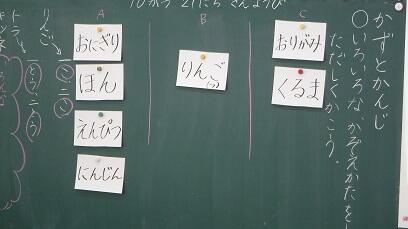 10がつ 21にち きんようび
かずとかんじ
○いろいろな、かぞえかたをし
ただしくかこう。
A
おにぎり
ほん
えんぴつ
にんじん
B
りんご
(つ)
C
おりがみ
くるま
りんご
一こ 二こ
トラ
一とう 二とう
キツネ